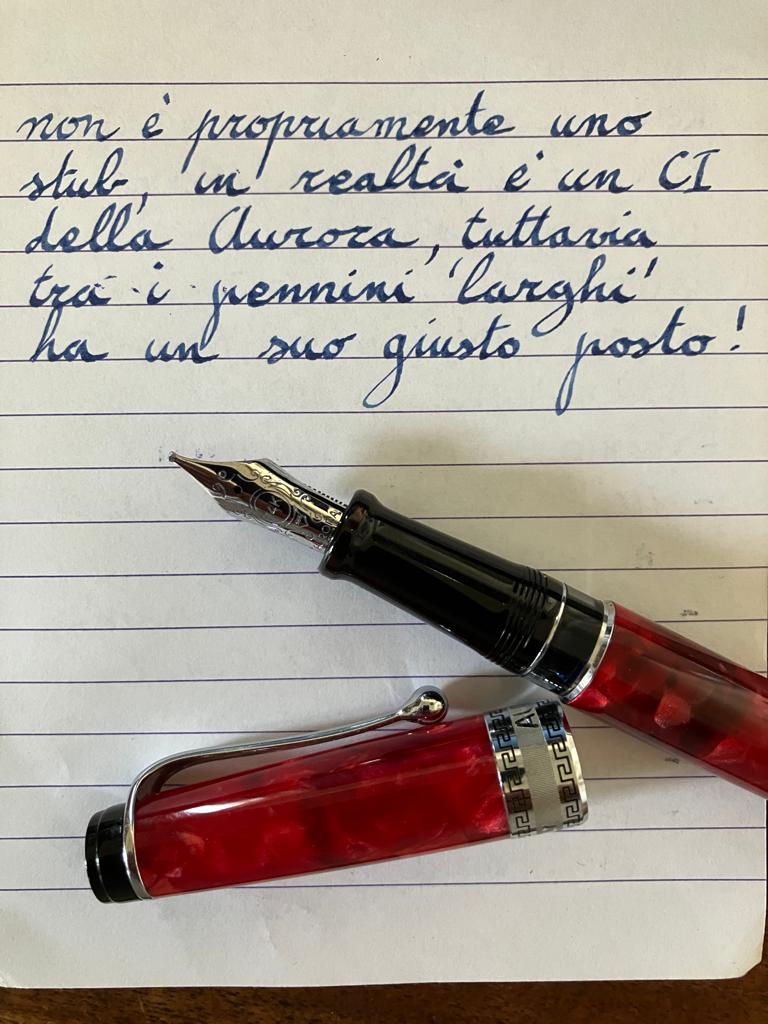 non è propriamente uno
stub, in realtà è un CI
della Aurora, tuttavia
tra i pennini 'larghi'
ha un suo giusto posto!
AU